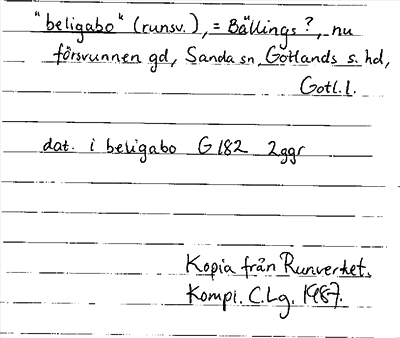 "beligabo" (runsv.), = Bällings?, nu
försvunnen gd, Sanda sn, Gotlands s. hd,
Gotl. l.
dat. i beligabo G 182 2ggr
Kopia från Runverket.
Kompl. C.Lg. 1987.